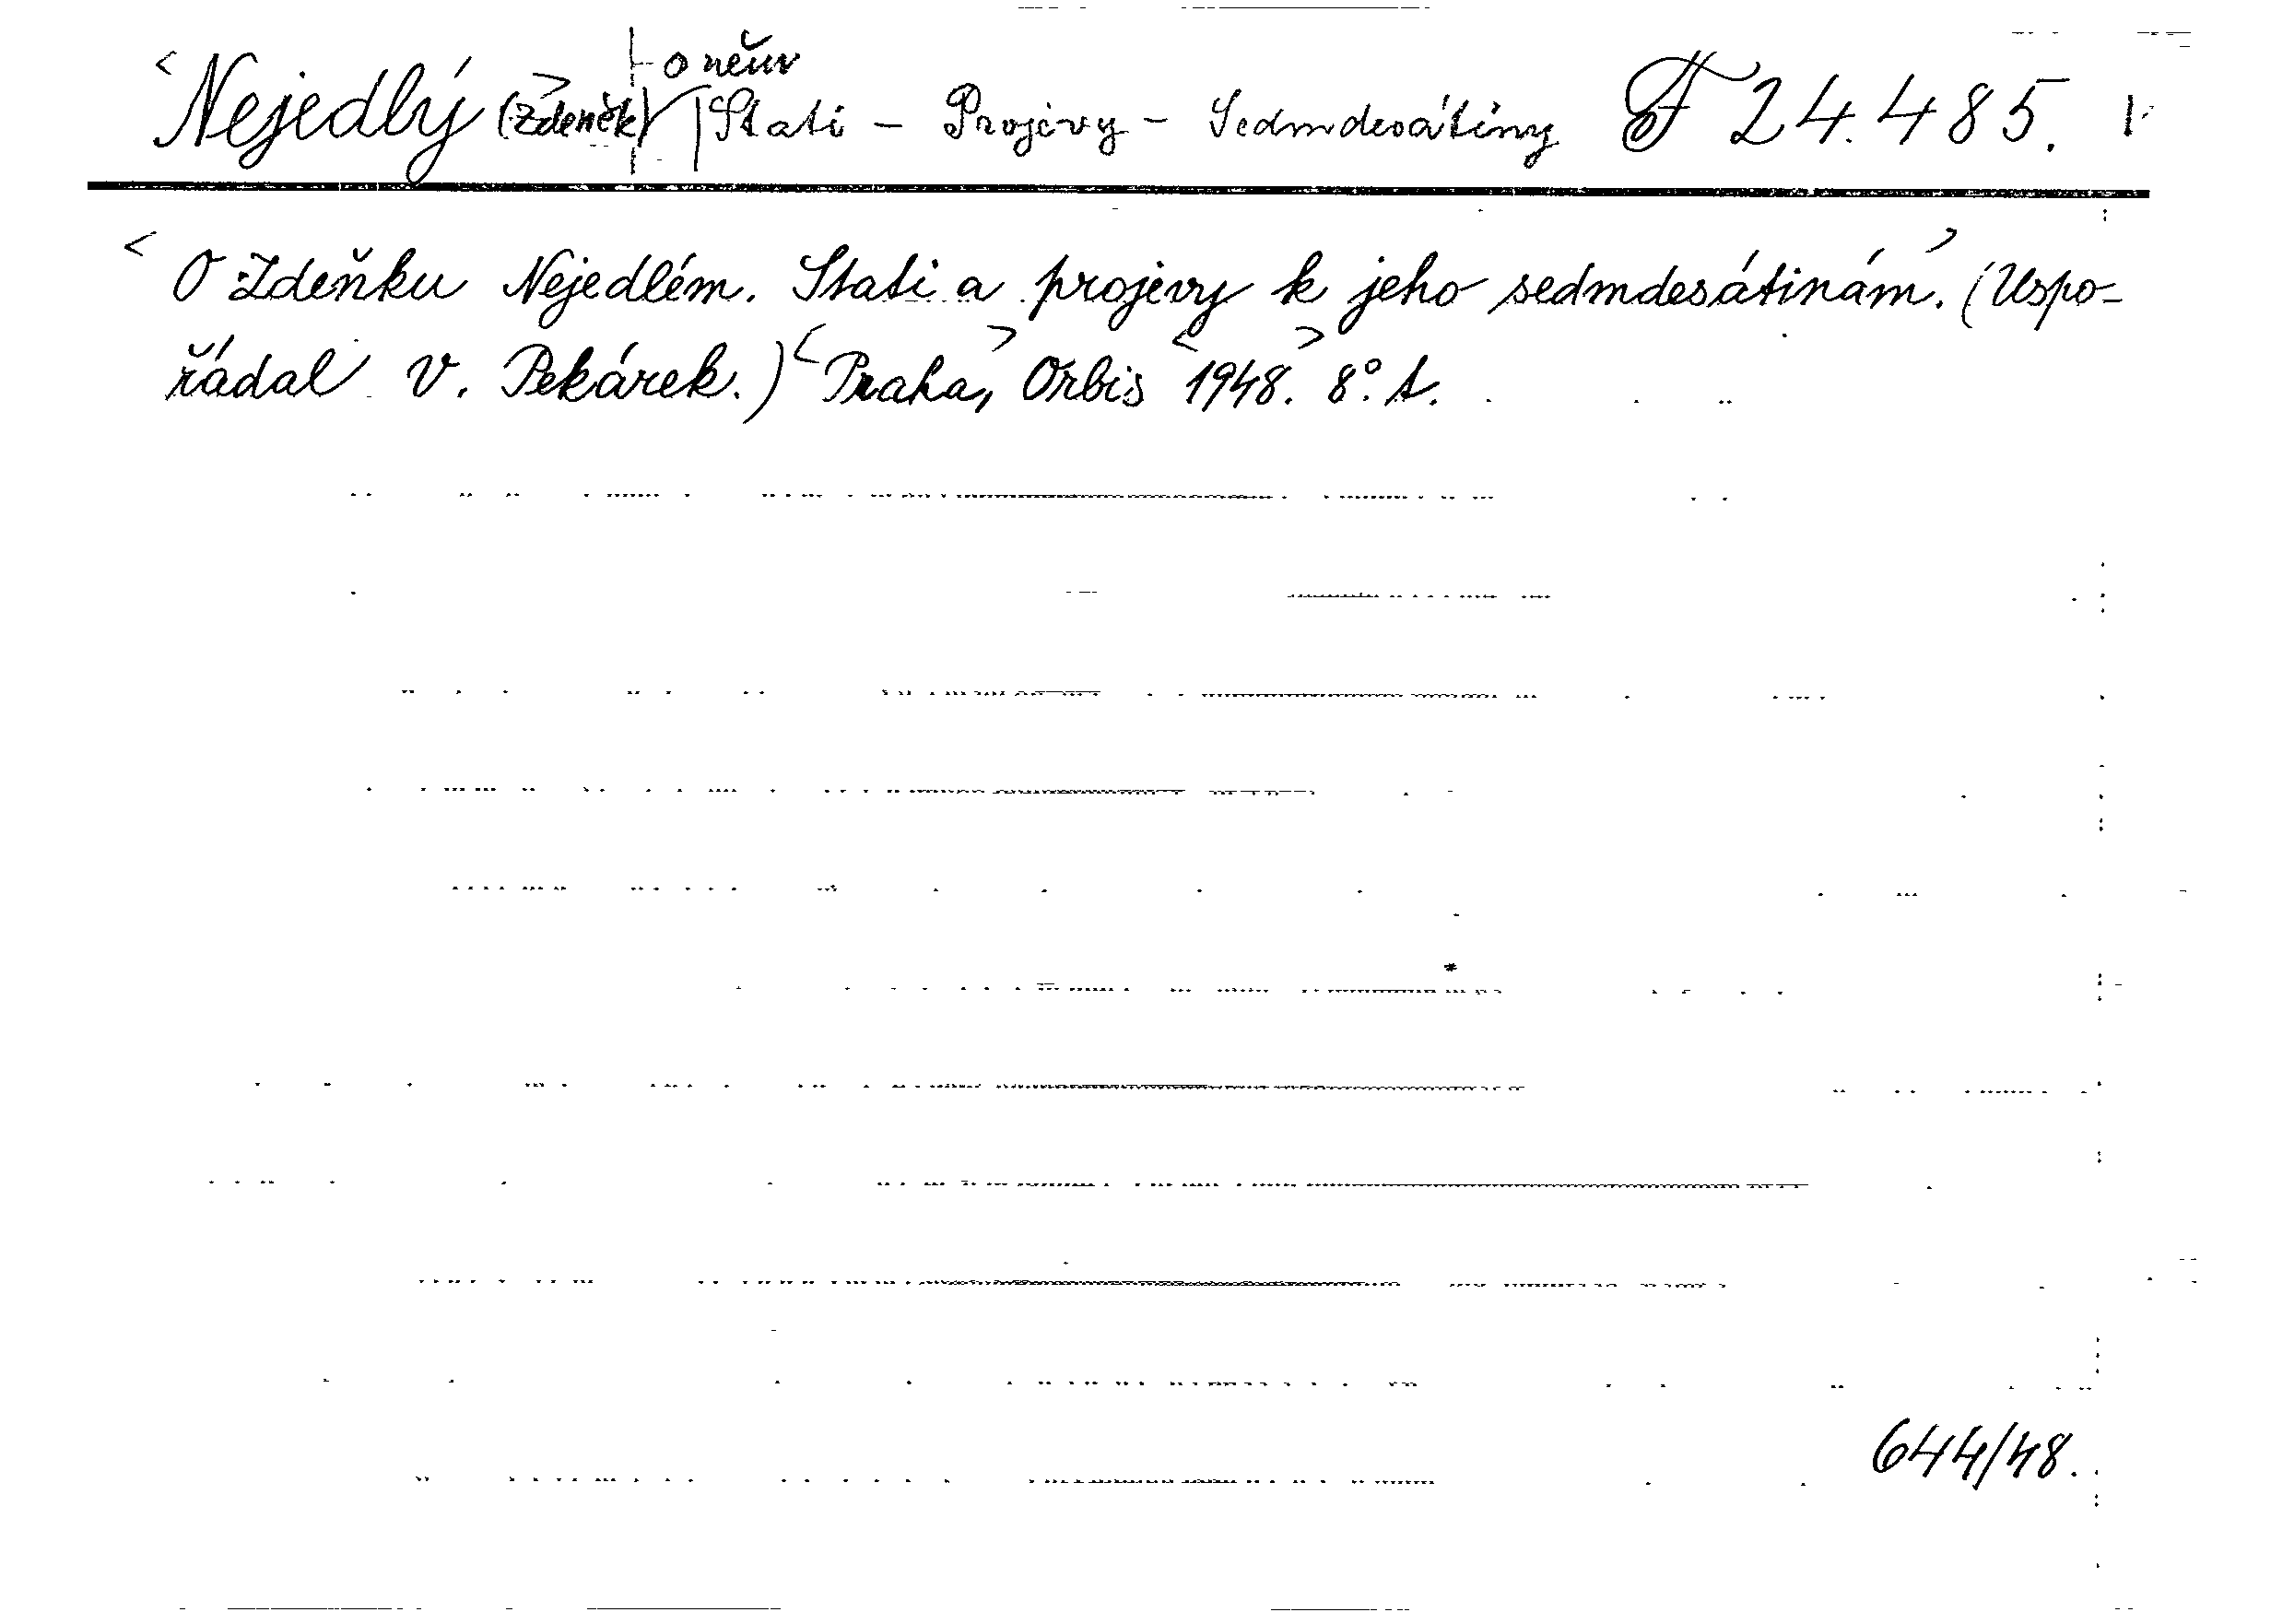 o něm
<Nejedlý (Zdeněk)> Stati – Projevy – Sedmdesátiny F 24.485.
<O Zdeňku Nejedlém. Stati a projevy k jeho sedmdesátinám>. (Uspo-
řádal V. Pekárek.) <Praha>, Orbis <1948>. 8°. A.
644/48.